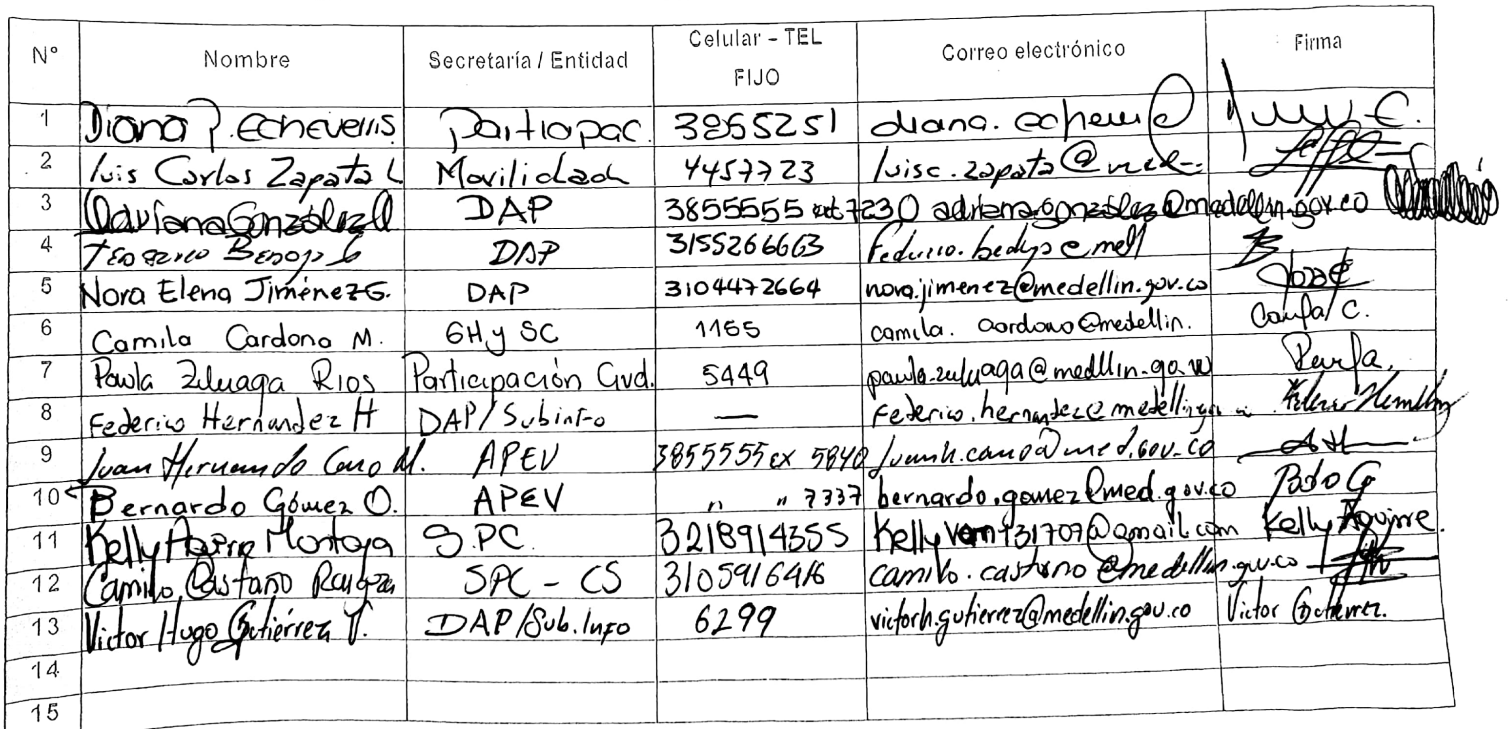 N° Nombre Secretaría / Entidad Celular - TEL FIJO Correo electrónico Firma
1 Diana P. Echeverris Participac. 3855251 diana. echeverr
2 Luis Carlos Zapata L Movilidad 4457723 luisc.zapata@med
3 Adriana González DAP 3855555 ext 7230 adriana.gonzalez@medellin.gov.co
4 DAP 3155266663
5 Nora Elena Jiménez G. DAP 3104472664 nora.jimenez@medellin.gov.co
6 Camila Cardona M. GH y SC 1155 camila. cardona@medellin.
7 Paula Zuluaga Rios Participación Ciud. 5449 paula.zuluaga@medllin.go.
8 Federico Hernandez H DAP/Subinfo — Federico.hernandez@medellin
9 Juan Hernando Cano M. APEV 3855555 ex 5840 juanh.cano@med.gov.co
10 Bernardo Gómez O. APEV " " 7337 bernardo.gomez@med.gov.co
11 Kelly Aguirre Montoya S.PC. 3218914355 Kelly Aguirre.
12 Camilo Castaño SPC - CS 3105916416 camilo.castano@medellin.gov.co
13 Victor Hugo Gutiérrez V. DAP/Sub.Info 6299 victorh.gutierrez@medellin.gov.co Victor Gutierrez.
14
15